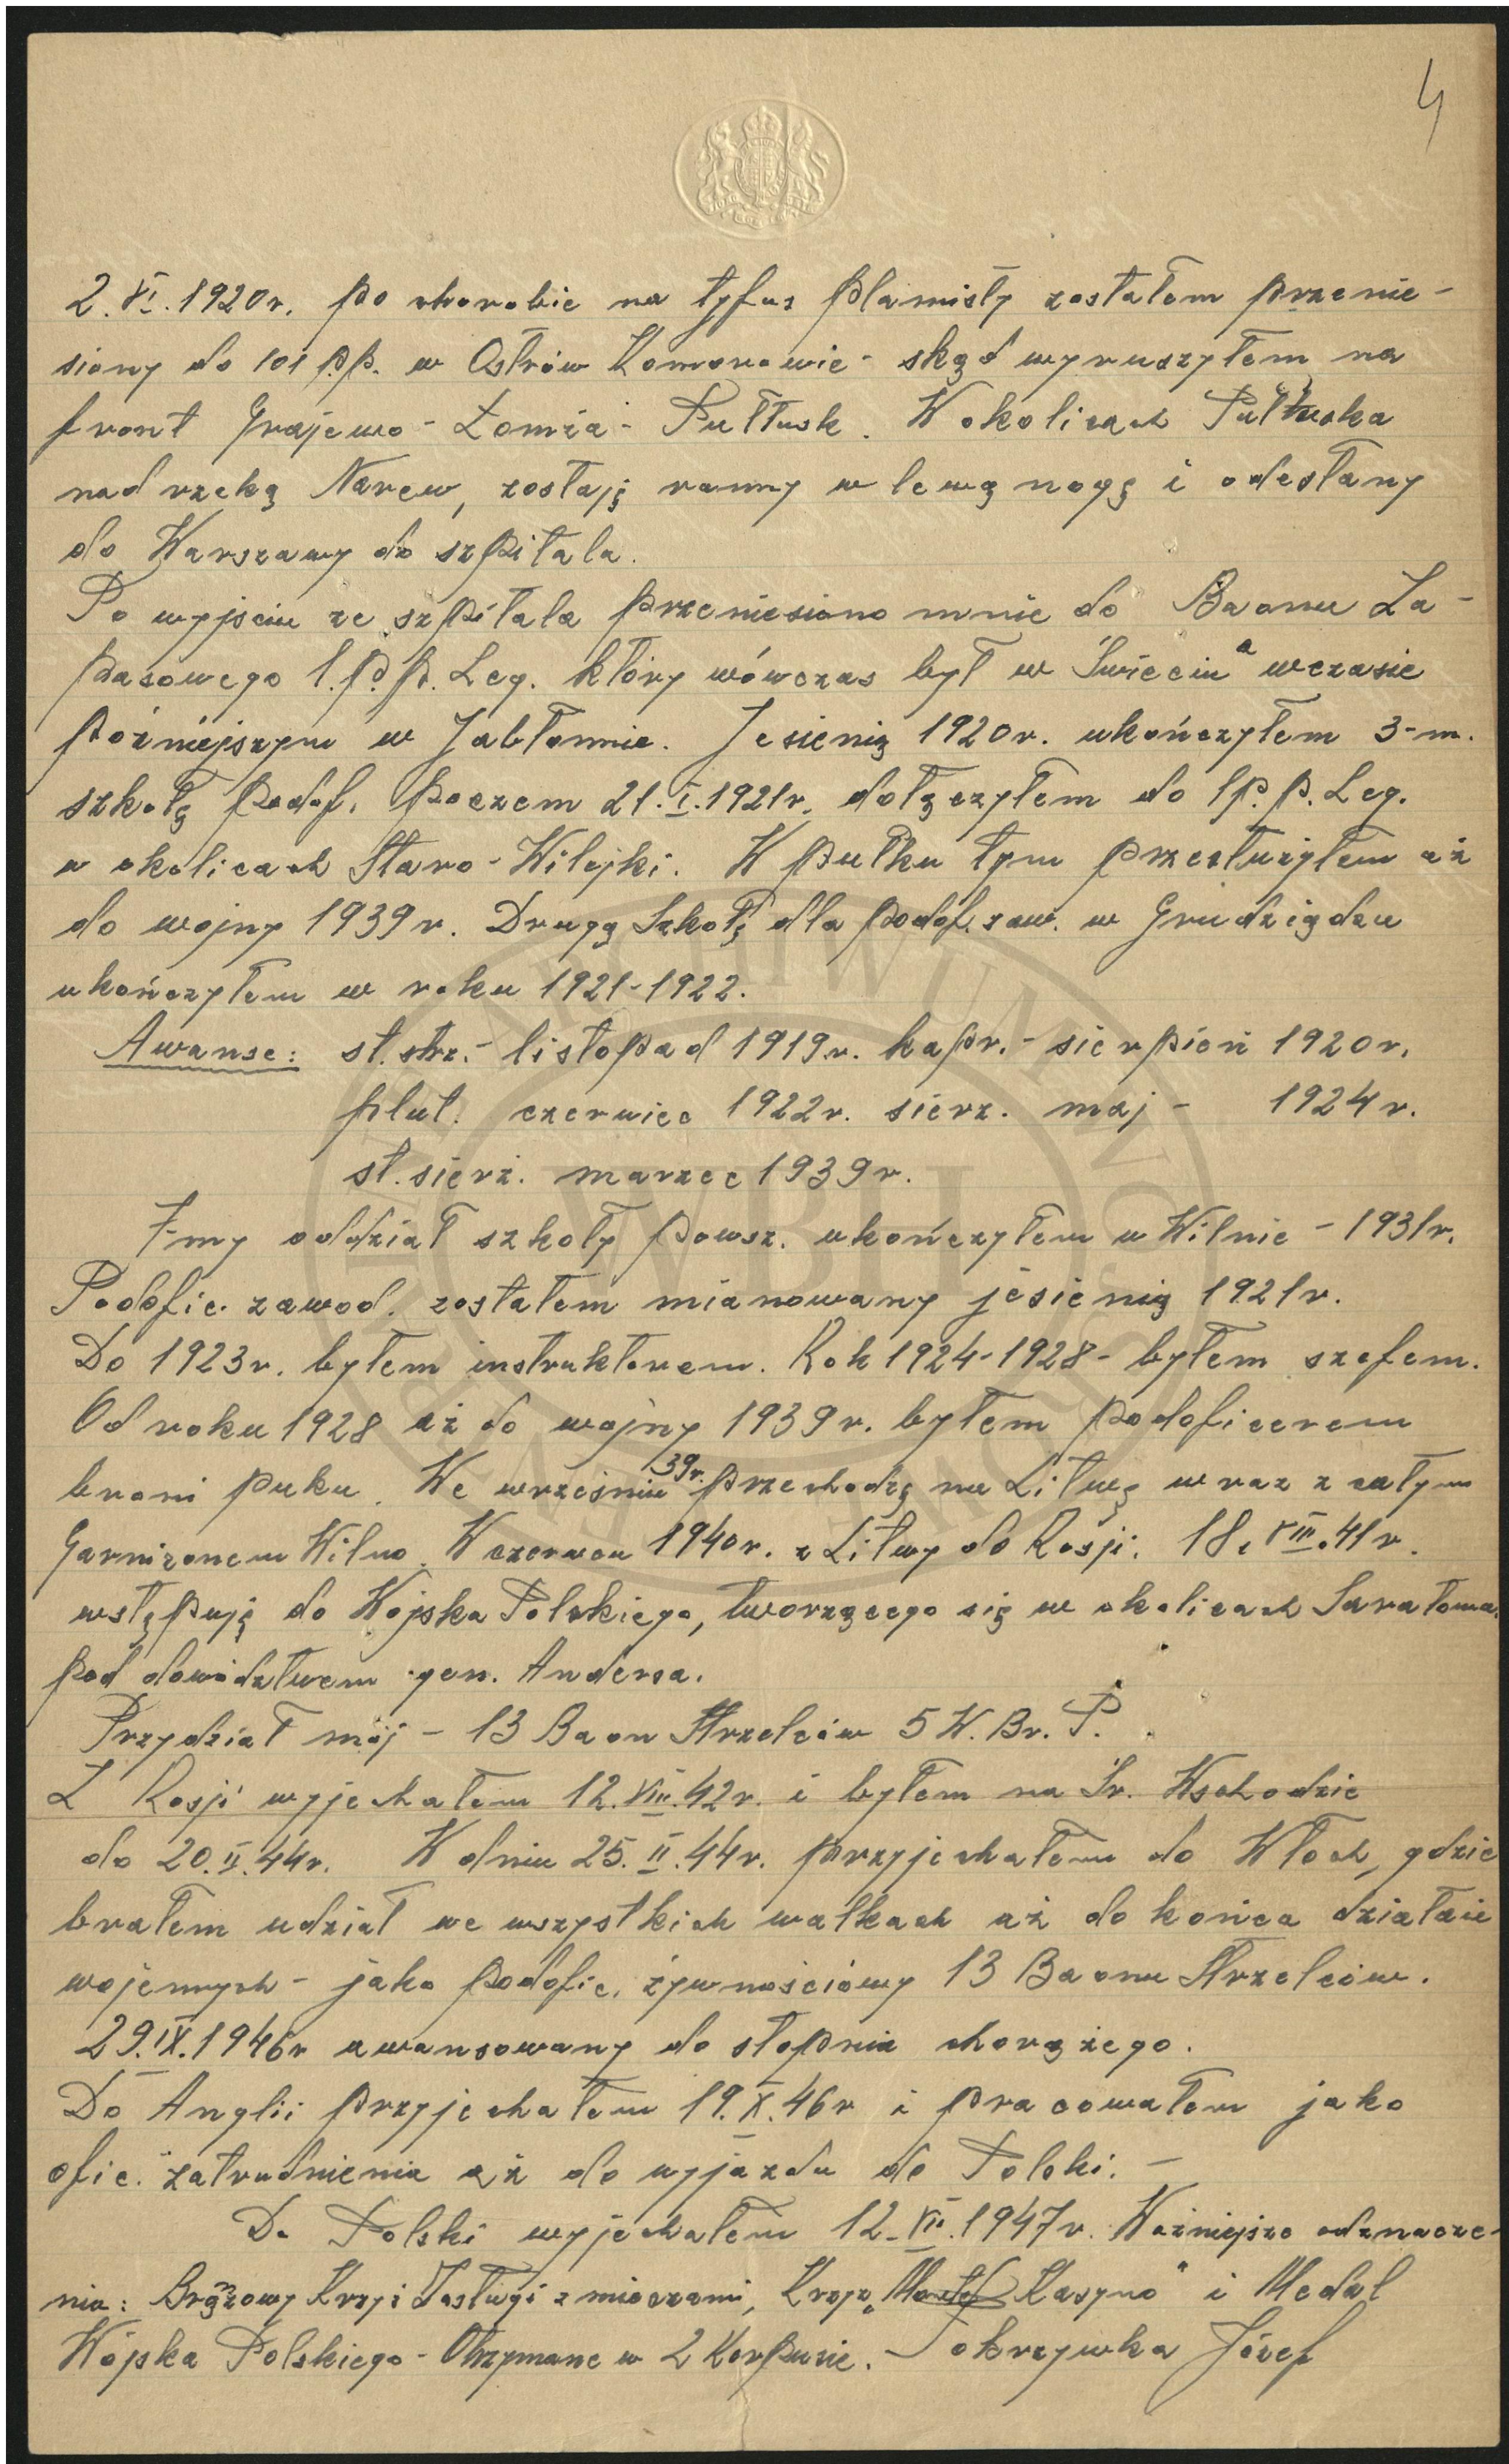 4
2.VI.1920r. po chorobie na tyfus plamisty zostałem przenie-
siony do 101 p.p. w Ostrów Komorowie - skąd wyruszyłem na
front Grajewo - Łomża - Pułtusk. W okolicach Pułtuska
nad rzeką Narew, zostaję ranny w lewą nogę i odesłany
do Warszawy do szpitala.
Po wyjściu ze szpitala przeniesiono mnie do Baonu Za-
pasowego 1.p.p. Leg. który wówczas był w Świeciu a wczasie
późniejszym w Jabłonnie. Jesienią 1920r. ukończyłem 3-m.
szkołę podof. poczem 21.I.1921r. dołączyłem do 1p.p. Leg.
w okolicach Staro-Wilejki. W pułku tym przesłużyłem aż
do wojny 1939r. Drugą Szkołę dla podof. zaw. w Grudziądzu
ukończyłem w roku 1921-1922.
Awanse: st. strz. - listopad 1919r. kapr. - sierpień 1920r.
plut. czerwiec 1922r. sierż. maj - 1924r.
st. sierż. marzec 1939r.
7-my oddział szkoły powsz. ukończyłem w Wilnie - 1931r.
Podofic. zawod. zostałem mianowany jesienią 1921r.
Do 1923r. byłem instruktorem. Rok 1924-1928 - byłem szefem.
Od roku 1928 aż do wojny 1939r. byłem podoficerem
broni puku. We wrześniu 39r. przechodzę na Litwę wraz z całym
Garnizonem Wilno. W czerwcu 1940r. z Litwy do Rosji. 18.VIII.41r.
wstępuję do Wojska Polskiego, tworzącego się w okolicach Saratowa
pod dowództwem gen. Andersa.
Przydział mój - 13 Baon Strzelców 5 W. Br. P.
Z Rosji wyjechałem 12.VIII.42r. i byłem na Śr. Wschodzie
do 20.II.44r. W dniu 25.II.44r. przyjechałem do Włoch, gdzie
brałem udział we wszystkich walkach aż do końca działań
wojennych - jako podofic. żywnościowy 13 Baonu Strzelców.
29.IX.1946r awansowany do stopnia chorążego.
Do Anglii przyjechałem 19.X.46r i pracowałem jako
ofic. zatrudnienia aż do wyjazdu do Polski. -
Do Polski wyjechałem 12.VII.1947r. Ważniejsze odznacze-
nia: Brązowy Krzyż Zasługi z mieczami, Krzyż „Monte Kasyno" i Medal
Wojska Polskiego - Otrzymane w 2 Korpusie. - Pokrzywka Józef
ARCHIWUM
WBH